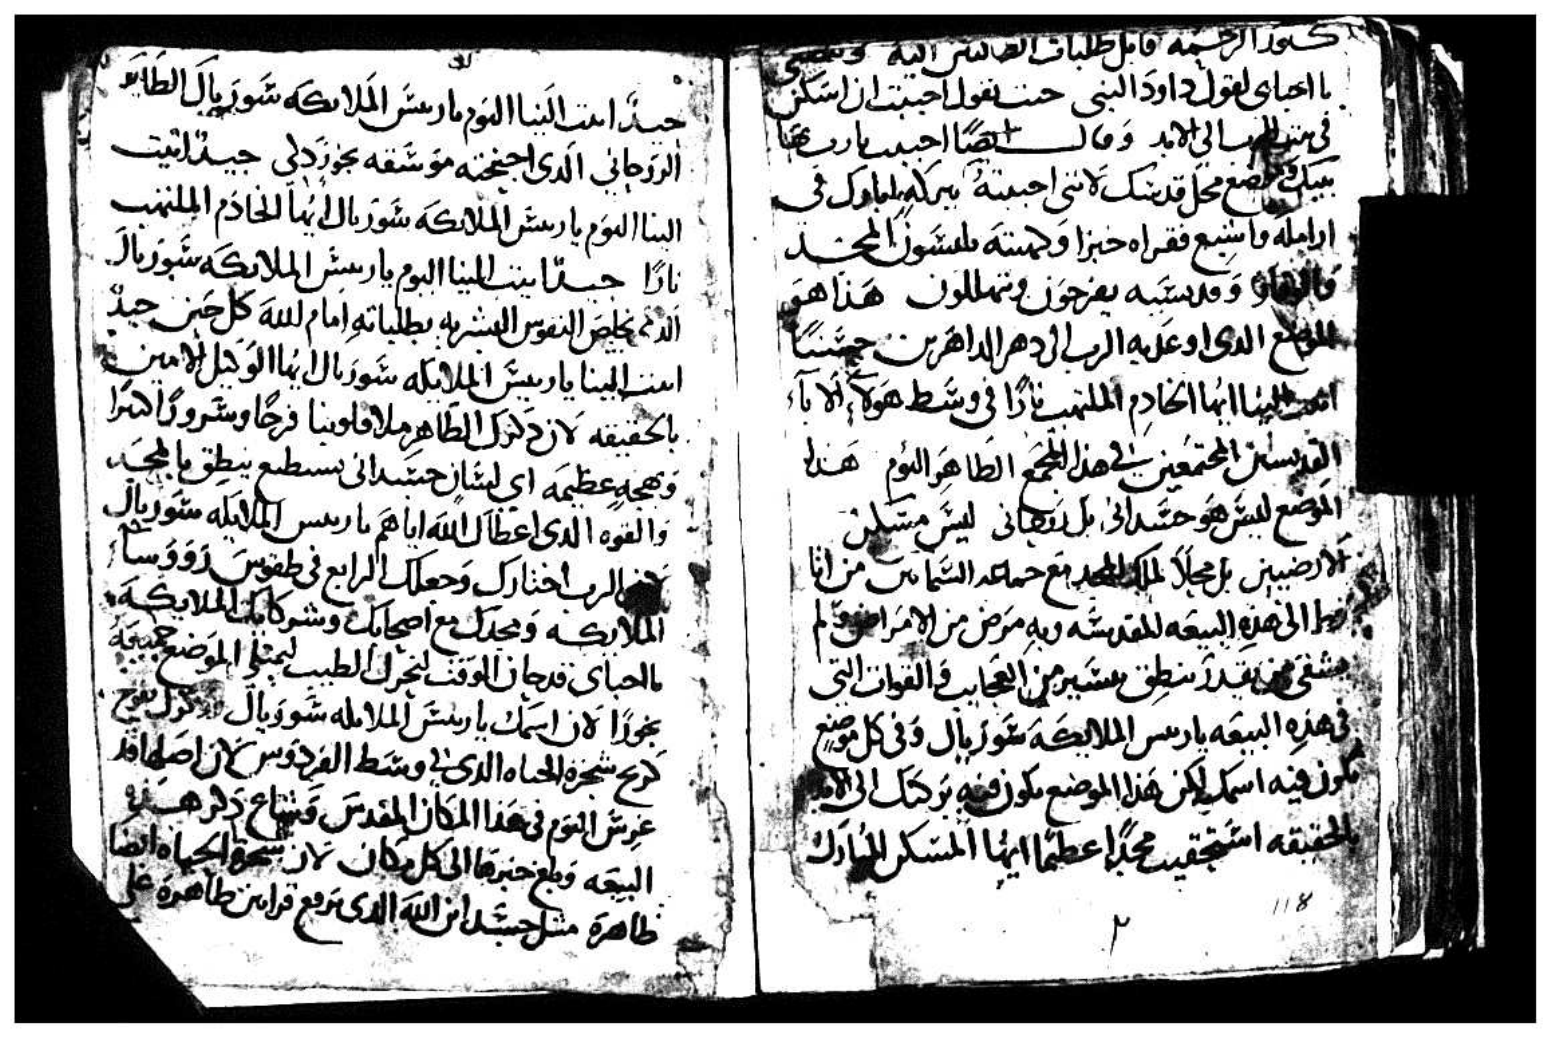 كنوز الرحمه قابل طلبات الطالبين اليه
يا احباى لقول داود النبى حيث يقول احببت ان اسكن
فى بيت الرب الى الابد وقال ايضًا احببت يارب بها
بيتك وموضع محل قدسك لاننى احببته ببركه ابارك فى
ارامله واشبع فقراه خبزا وكهنته يلبسون المجد
والوقار وقديسيه يفرحون ويتهللون هذا هو
الموضع الدى اوعد به الرب الى دهر الداهرين حسنًا
اتيت الينا ايها الخادم الملتهب نارًا فى وسط هولاء الابآء
القديسين المجتمعين فى هذا المجمع الطاهر اليوم هذا
الموضع ليس هو جسدانى بل روحانى ليس مسكن
الارضيين بل محلاً لملك المجد مع جماعه السمايين من اتا
قط الى هذه البيعه المقدسه وبه مرض من الامراض ولم
يشفى من يقدر ينطق بيسير من العجايب والقوات التى
فى هذه البيعه ياريس الملايكه سوريال وفى كل موضع
يكون فيه اسمك لكن هذا الموضع يكون فيه بركتك الى الابد
بالحقيقه استحقيت مجدًا عظيمًا ايها المسكن المبارك
118
٢
جيدًا اتيت الينا اليوم ياريس الملايكه سوريال الطاير
الروحانى الدى اجنحته موسقه بخور دكى جيدًا اتيت
الينا اليوم ياريس الملايكه سوريال ايها الخادم الملتهب
نارًا جيدًا اتيت الينا اليوم ياريس الملايكه سوريال
الدى يخلص النفوس البشريه بطلباته امام الله كل حين جيدًا
اتيت الينا ياريس الملايكه سوريال ايها الوكيل الامين
بالحقيقه لان دكرك الطاهر ملا قلوبنا فرحًا وسرورًا
وبهجه عظيمه اى لسان جسدانى يستطيع ينطق بالمجد
والقوه الدى اعطاك الله اياهم ياريس الملايكه سوريال
لان الرب اختارك وجعلك الرابع فى طقوس رووسا
الملايكه ومجدك مع اصحابك وشركايك الملايكه
يااحباى قد حان الوقت لنحرك الطيب ليمتلى الموضع جميعه
بخورًا لان اسمك ياريس الملايكه سوريال دكرك يفوح
كريح شجرة الحياه الدى فى وسط الفردوس لان اصلها قد
غرس اليوم فى هذا المكان المقدس وشاع دكر هذه
البيعه وبلغ خبرها الى كل مكان لان شجرة الحياه ايضا
ظاهرة مثل جسد ابن الله الدى يرفع قرابين طاهره على